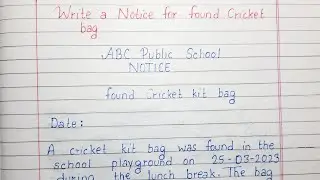 Write a Notice for found Cricket
bag
ABC Public School
NOTICE
found Cricket kit bag
Date:
A cricket kit bag was found in the
school playground on 25-03-2023
during the lunch break. The bag